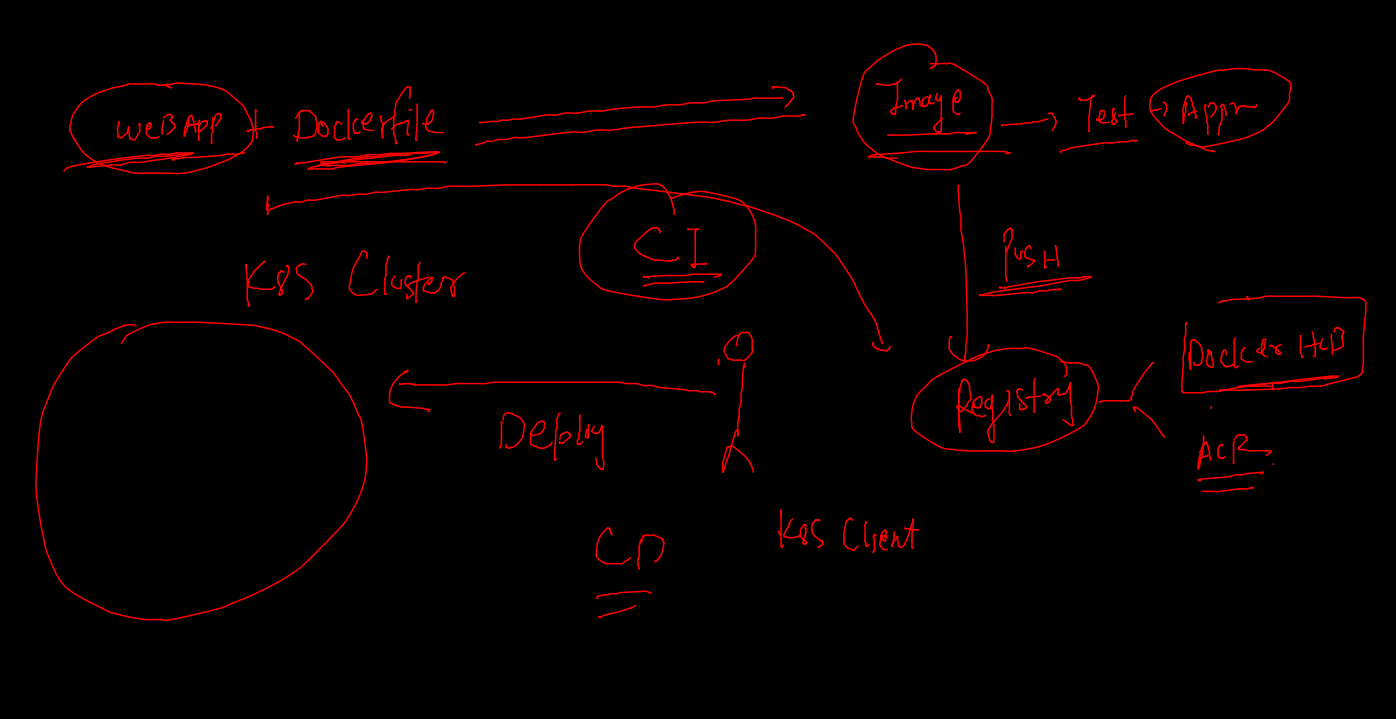 WEBAPP + Dockerfile
Image
Test
Appr
CI
K8S Cluster
PUSH
Docker HUB
Registry
Deploy
ACR
K8S Client
CD